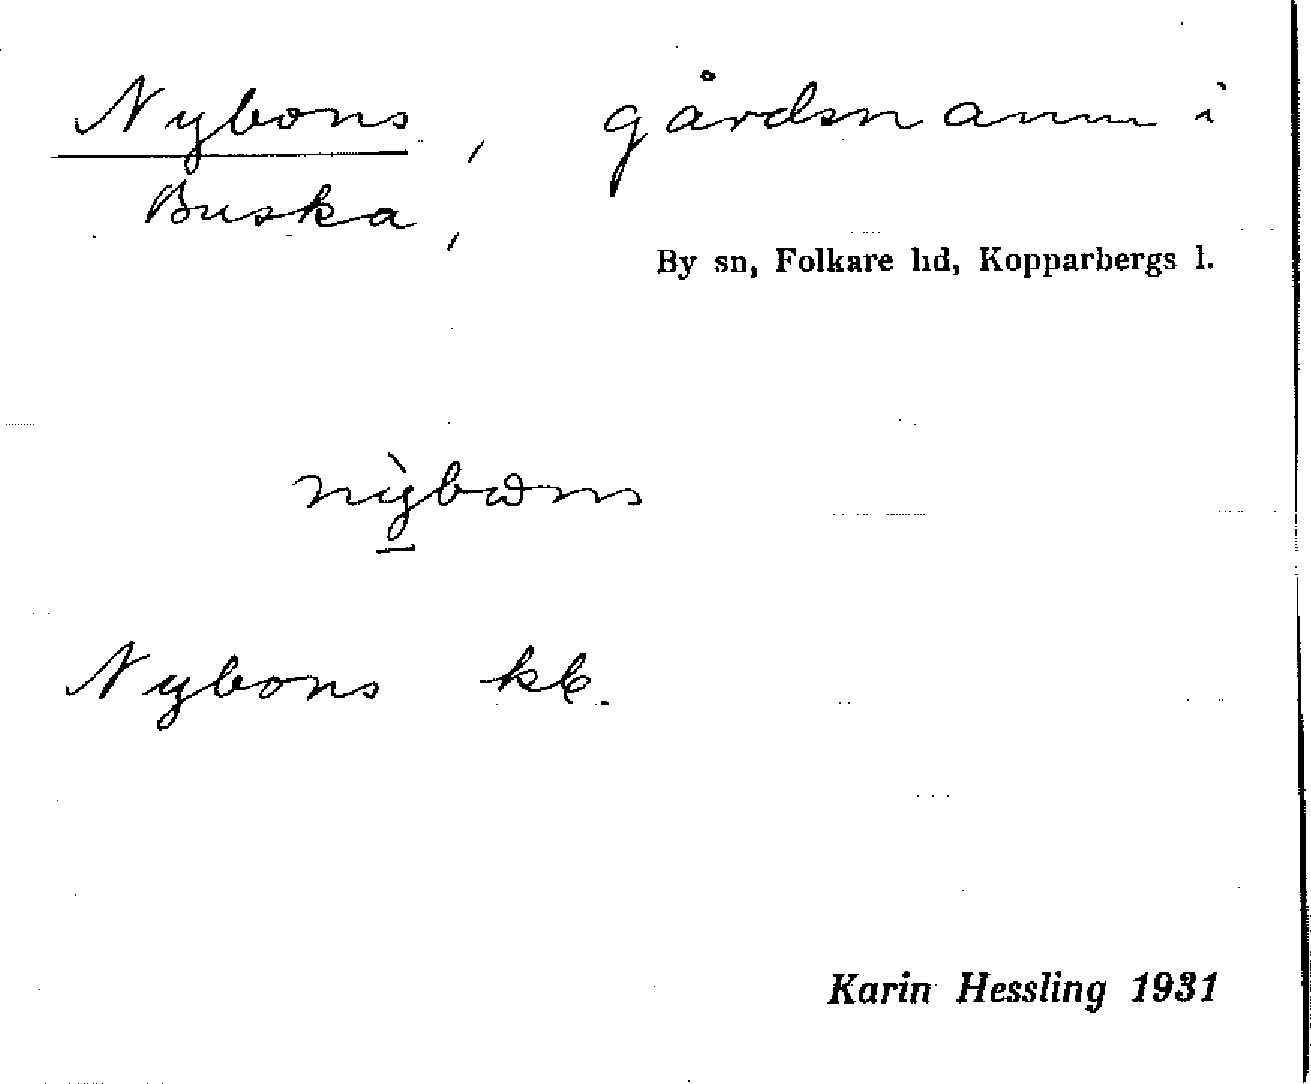 Nybons, gårdsnamn i
Buska,
By sn, Folkare hd, Kopparbergs l.
Nybons kb.
Karin Hessling 1931